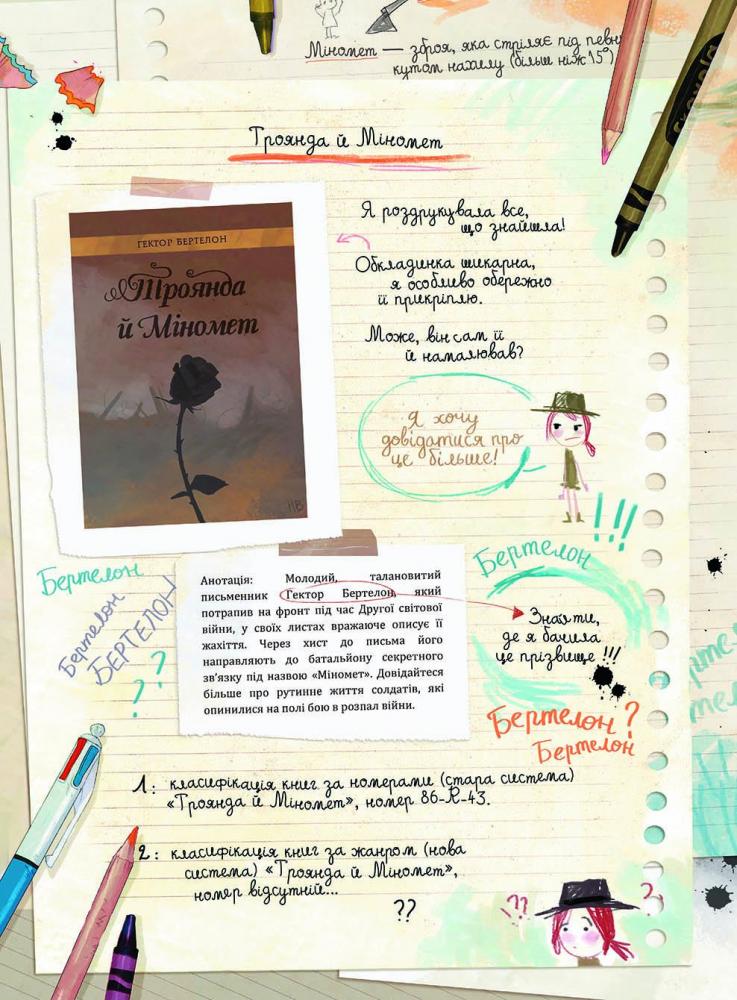 Міномет — зброя, яка стріляє під певн
кутом нахилу (більш ніж 15°)
Crayola
Троянда й Міномет
ГЕКТОР БЕРТЕЛОН
Троянда
й Міномет
НВ
Я роздрукувала все,
що знайшла!
Обкладинка шикарна,
я особливо обережно
її прикріплю.
Може, він сам її
й намалював?
Я хочу
довідатися про
це більше!
!!!
Бертелон
Бертелон
Бертелон
БЕРТЕЛОН
??
Анотація: Молодий, талановитий
письменник Гектор Бертелон, який
потрапив на фронт під час Другої світової
війни, у своїх листах вражаюче описує її
жахіття. Через хист до письма його
направляють до батальйону секретного
зв'язку під назвою «Міномет». Довідайтеся
більше про рутинне життя солдатів, які
опинилися на полі бою в розпал війни.
Знайти,
де я бачила
це прізвище !!!
Бертелон ?
Бертелон
1: класифікація книг за номерами (стара система)
«Троянда й Міномет», номер 86-R-43.
2: класифікація книг за жанром (нова
система) «Троянда й Міномет»,
номер відсутній...
??
??
?